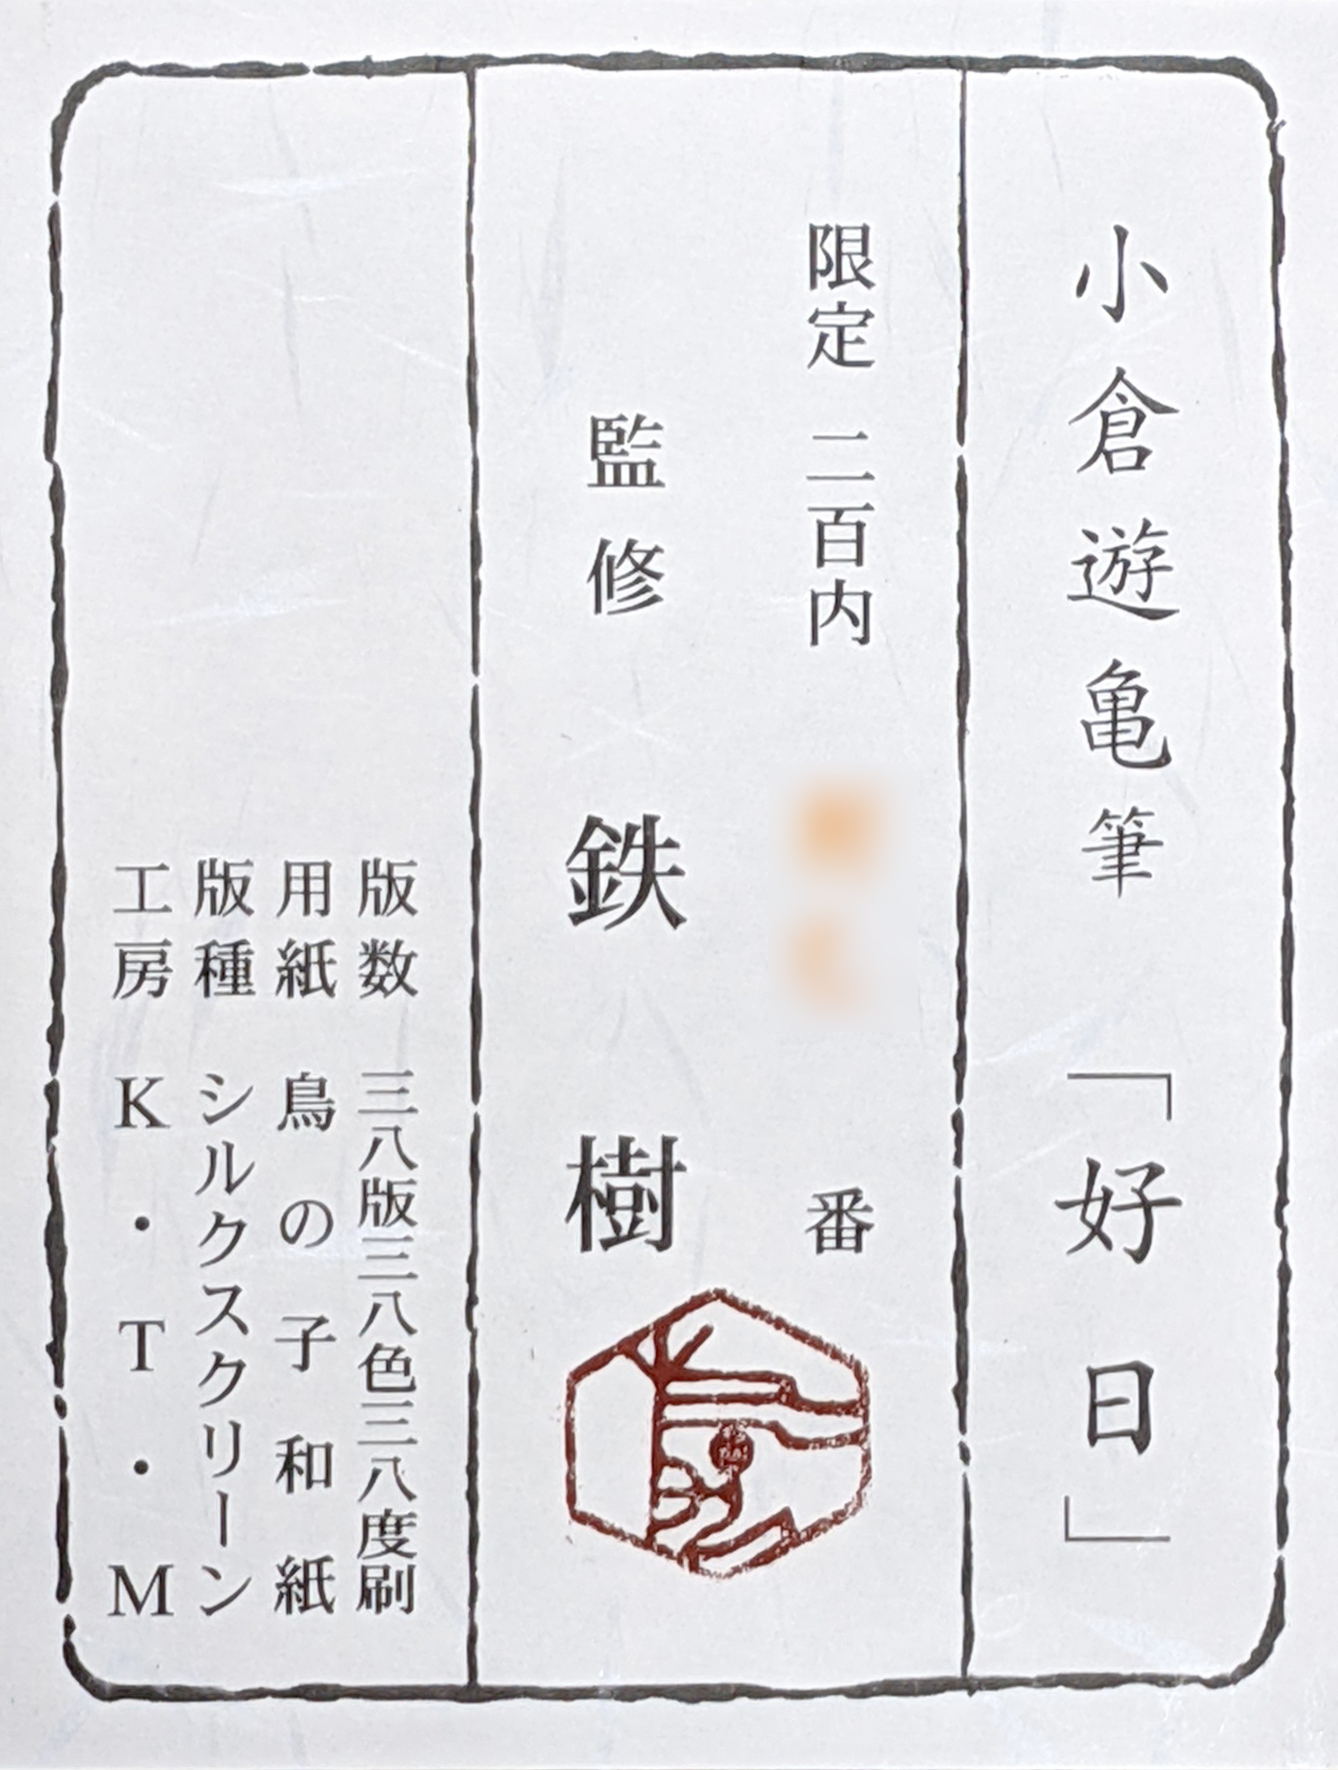 小倉遊亀筆「好日」
限定 二百内 番
監修 鉄樹
版数 三八版三八色三八度刷
用紙 鳥の子和紙
版種 シルクスクリーン
工房 K・T・M